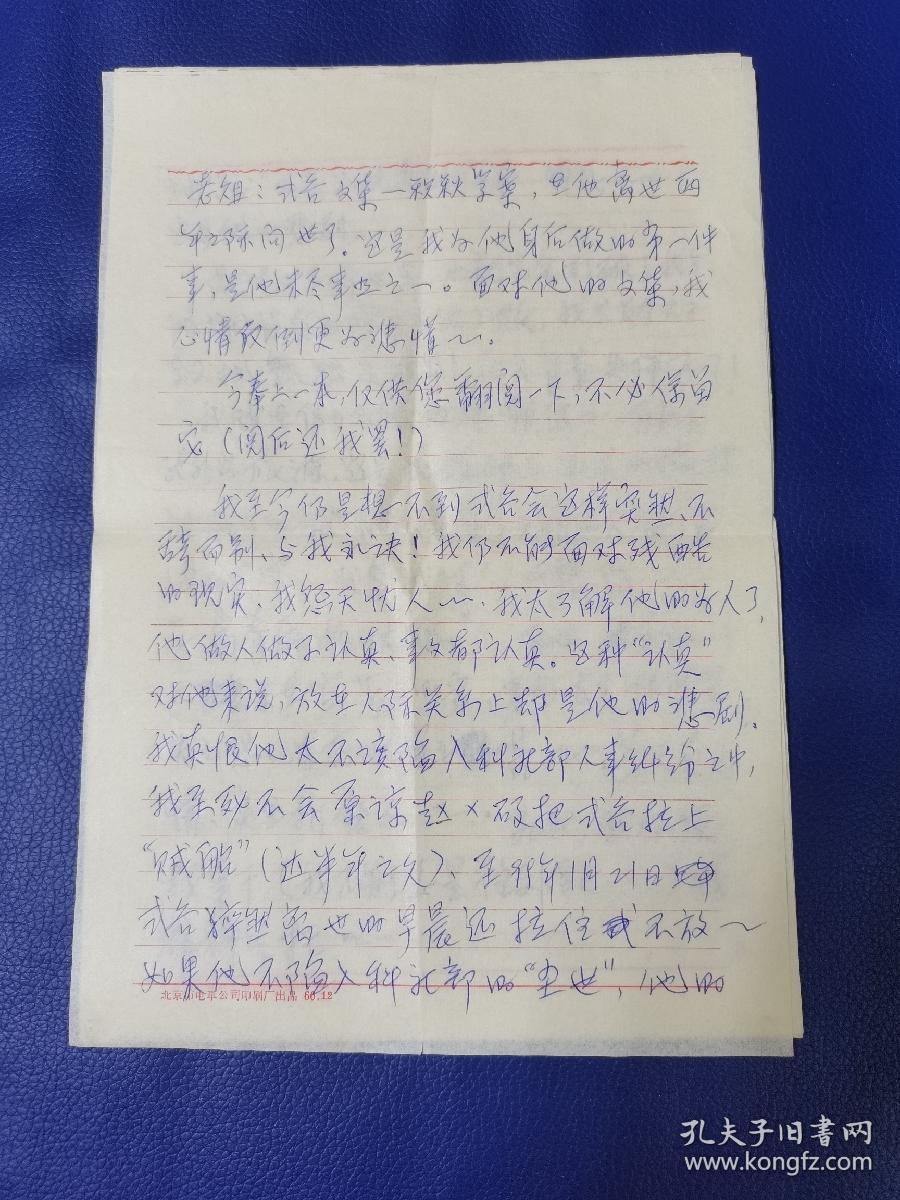 老姐：式谷文集—耕耘学案，在他离世四
年之际问世了。这是我为他身后做的第一件
事，是他未尽事业之一。面对他的文集，我
心情反倒更为悲情～。
今奉上一本，仅供您翻阅一下，不必保留
它（阅后还我罢！）
我至今仍是想不到式谷会这样突然、不
辞而别、与我永诀！我仍不能面对残酷
的现实、我怨天忧人～、我太了解他的为人了，
他做人做事认真、事事都认真。这种“认真”
对他来说，放在人际关系上却是他的悲剧。
我真恨他太不该陷入科社部人事纠纷之中，
我至死不会原谅赵×砍把式谷拉上
“贼船”（达半年之久）、至99年1月21日
式谷猝然离世的早晨还拉住不放～
如果他不陷入科社部的“”，他的
北京市电车公司印刷厂出品 60.12
孔夫子旧书网
www.kongfz.com